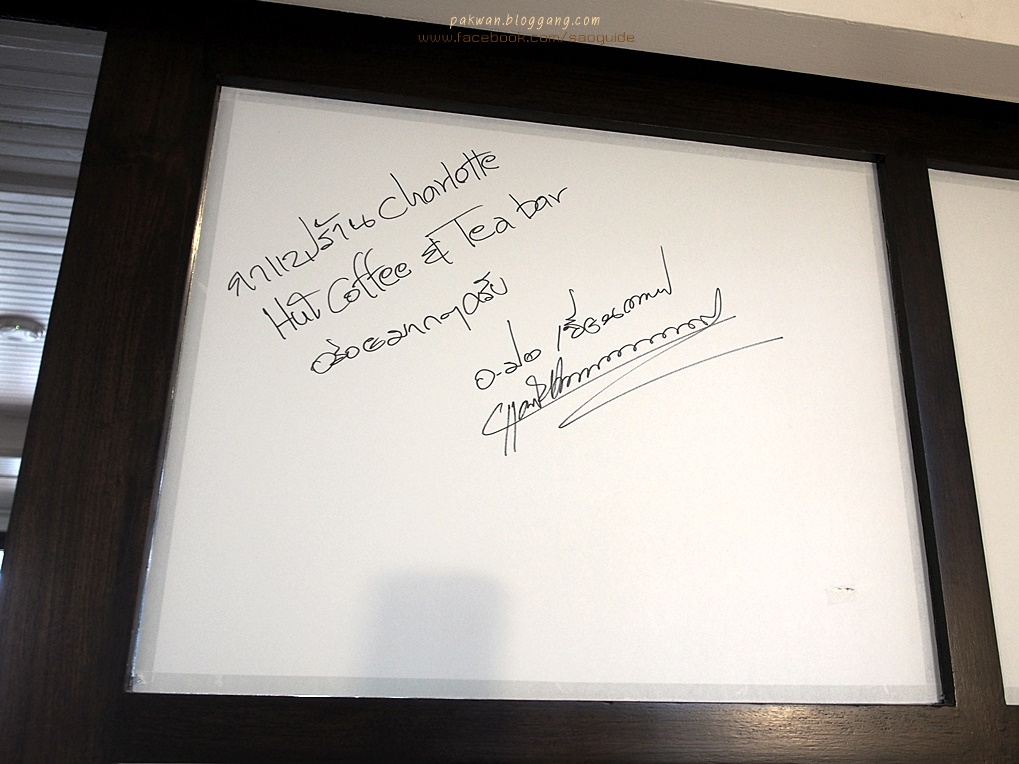 pakwan.bloggang.com
www.facebook.com/saoguide
กาแฟร้าน Charlotte
Hut Coffee & Tea bar
อร่อยมากๆครับ